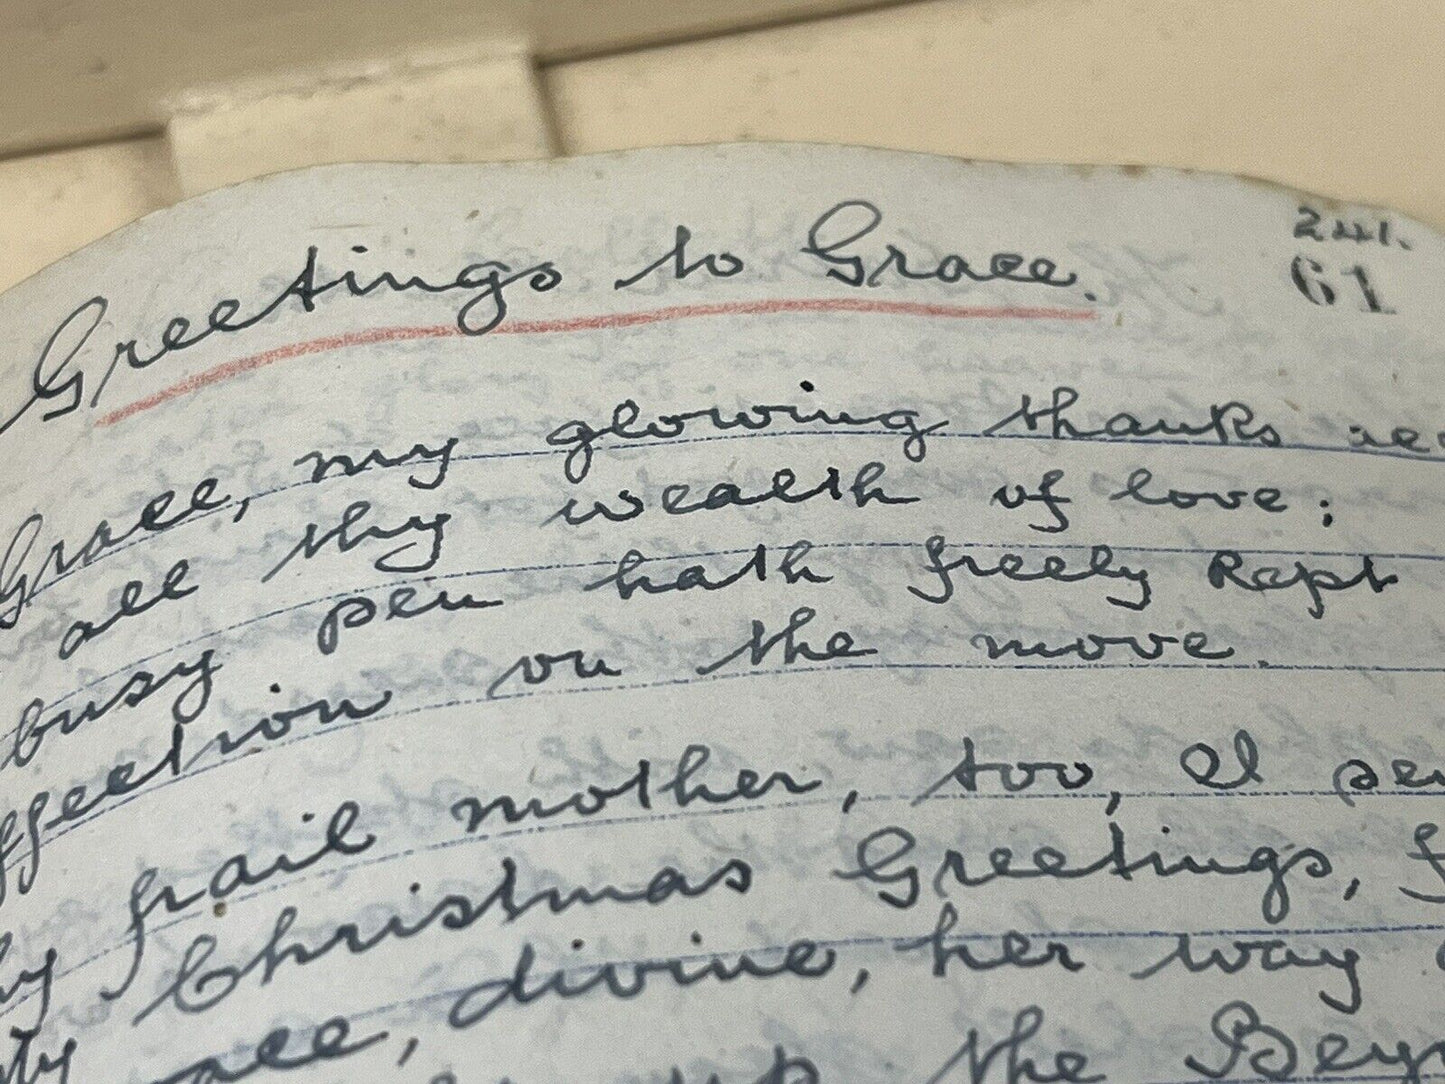 241.
61
Greetings to Grace.
Grace, my glowing thanks
all thy wealth of love;
busy pen hath freely kept
ffection on the move.
frail mother, too, I
Christmas Greetings,
divine, her way
up the